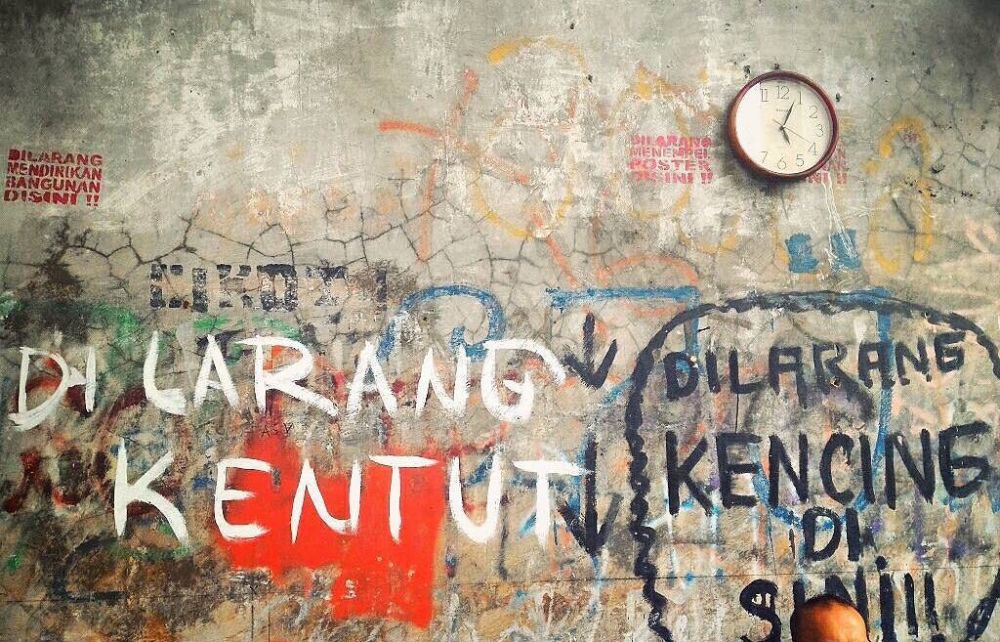 DILARANG
MENDIRIKAN
BANGUNAN
DISINI !!
DILARANG
MENEMPEL
POSTER
DISINI !!
12
1
2
3
4
5
6
7
DILARANG
KENTUT
DILARANG
KENCING
DI
SINI!!!